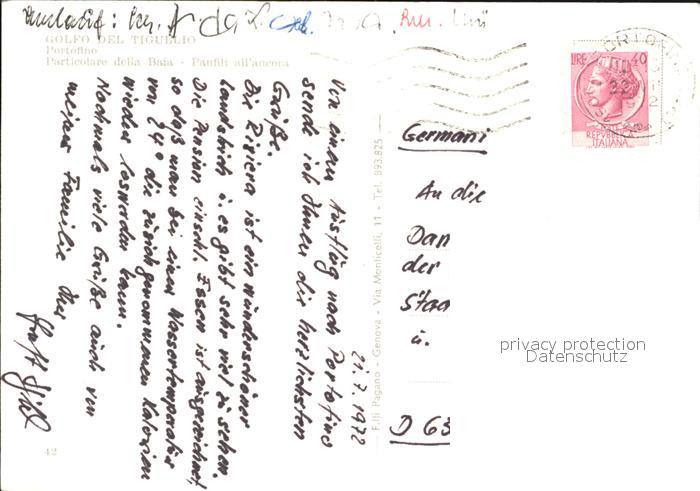 Umlauf:
GOLFO DEL TIGULLIO
Portofino
Particolare della Baia - Panfili all'ancora
21.7.1972
Von einem Ausflug nach Portofino
sende ich Ihnen die herzlichsten
Grüße.
Die Riviera ist ein wunderschöner
Landstrich u. es gibt sehr viel zu sehen.
Die Pension einschl. Essen ist ausgezeichnet,
so daß man bei einer Wassertemperatur
von 24° die zusichgenommenen Kalorien
wieder loswerden kann.
Nochmals viele Grüße auch von
meiner Familie Ihr
42
F.lli Pagano - Genova - Via Monticelli, 11 - Tel. 893.825
LIRE 40
REPVBBLICA
ITALIANA
Germani
An die
Dan
der
Staa
u.
D 63
privacy protection
Datenschutz